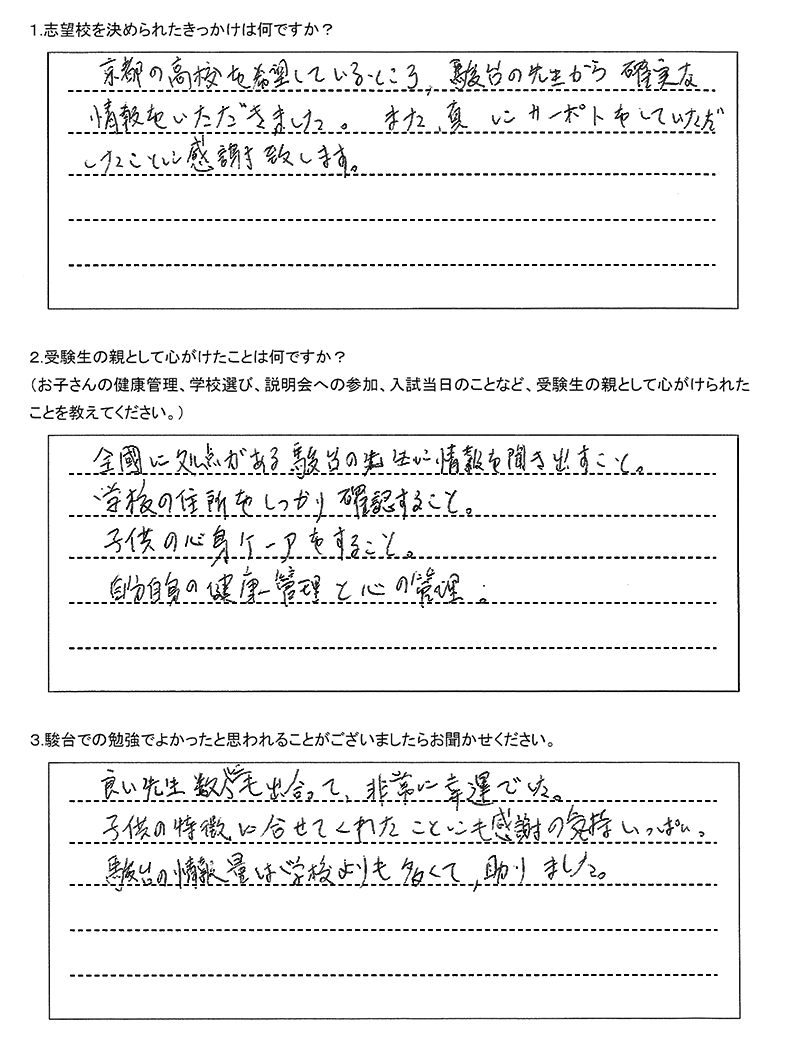 1.志望校を決められたきっかけは何ですか？
京都の高校を希望しているところ,駿台の先生から確実な
情報をいただきました。また、真にサーポトをしていただ
したことに感謝致します。
2.受験生の親として心がけたことは何ですか？
（お子さんの健康管理、学校選び、説明会への参加、入試当日のことなど、受験生の親として心がけられた
ことを教えてください。）
全國に処点がある駿台の先生に情報を聞き出すこと。
学校の住所をしっかり確認すること。
子供の心身ケーアをすること。
自分自身の健康管理と心の管理。
3.駿台での勉強でよかったと思われることがございましたらお聞かせください。
良い先生出合って、非常に幸運でした。
子供の特徴に合せてくれたことにも感謝の気持いっぱい。
駿台の情報量は学校よりも多くて,助りました。